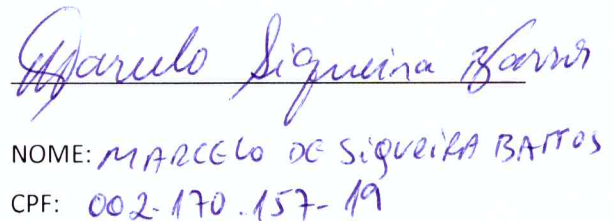 Marcelo Siqueira Barros
NOME: MARCELO DE SiQUEiRA BARROS
CPF: 002.170.157-19